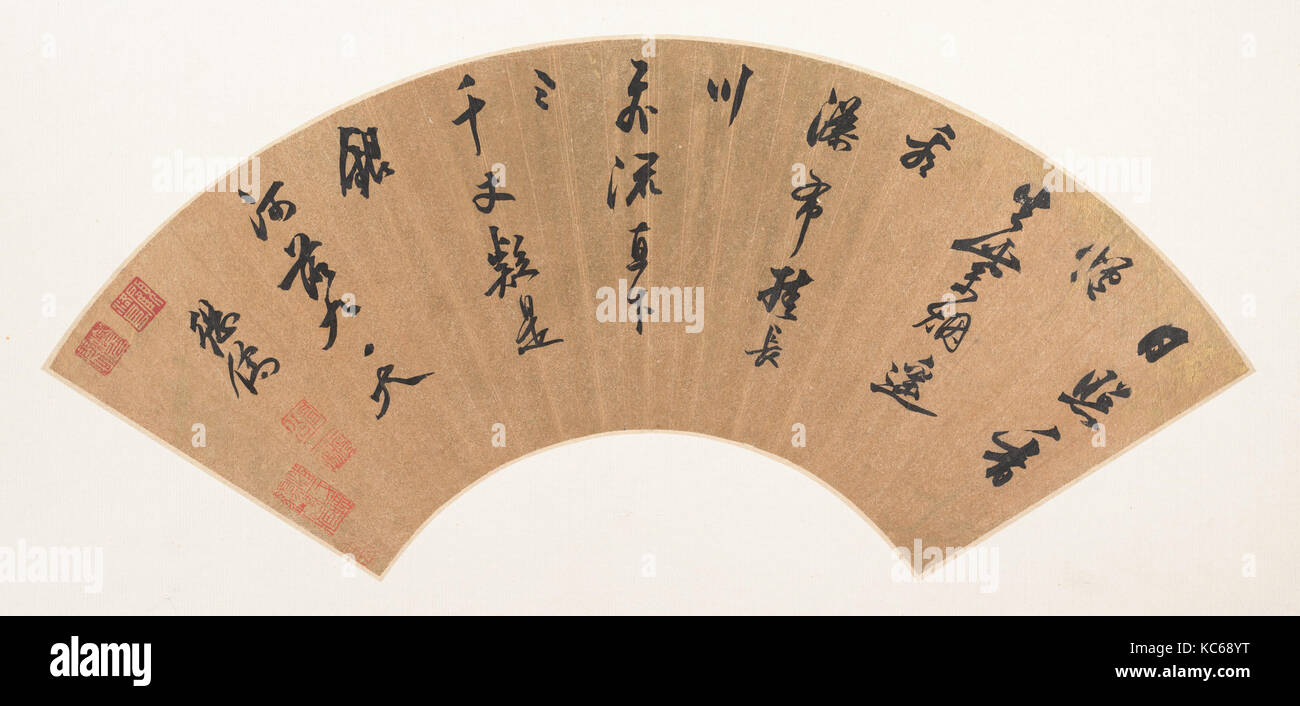 日照香
爐
生紫烟遙
看
瀑布挂長
川
飛流直下
三
千丈疑是
銀
河落九天
繼儒
alamy stock photo
alamy
Image ID: KC68YT
www.alamy.com